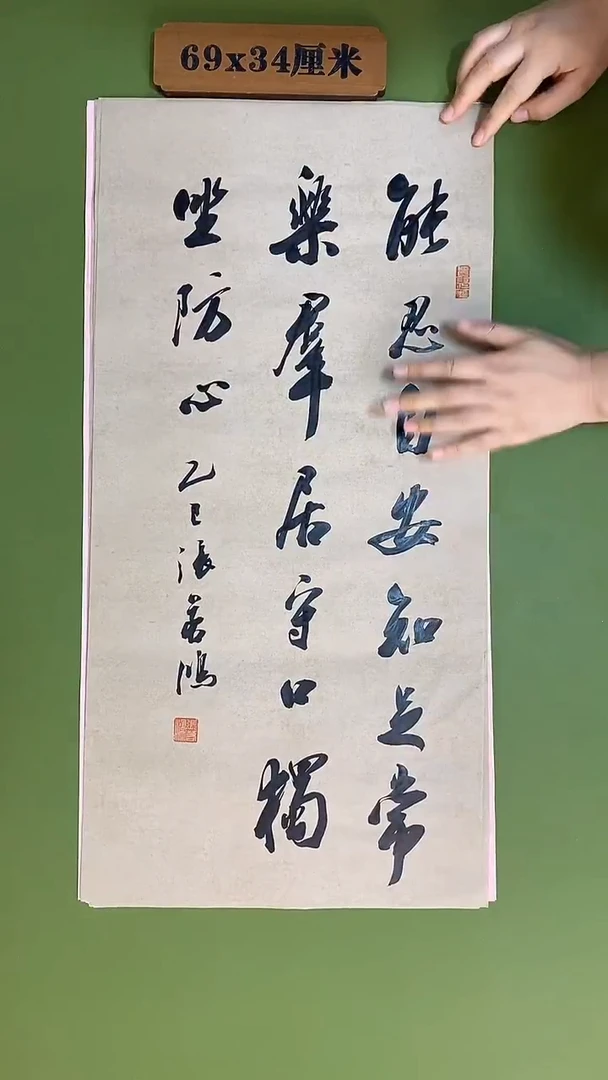 69x34厘米
能忍自安知足常
樂羣居守口獨
坐防心
乙巳張若鴻